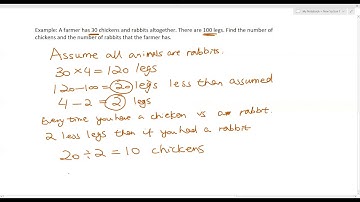 Example: A farmer has 30 chickens and rabbits altogether. There are 100 legs. Find the number of
chickens and the number of rabbits that the farmer has.
Assume all animals are rabbits.
30 × 4 = 120 legs
120 - 100 = 20 legs less than assumed
4 - 2 = 2 legs
Every time you have a chicken vs a rabbit.
2 less legs then if you had a rabbit
20 ÷ 2 = 10 chickens